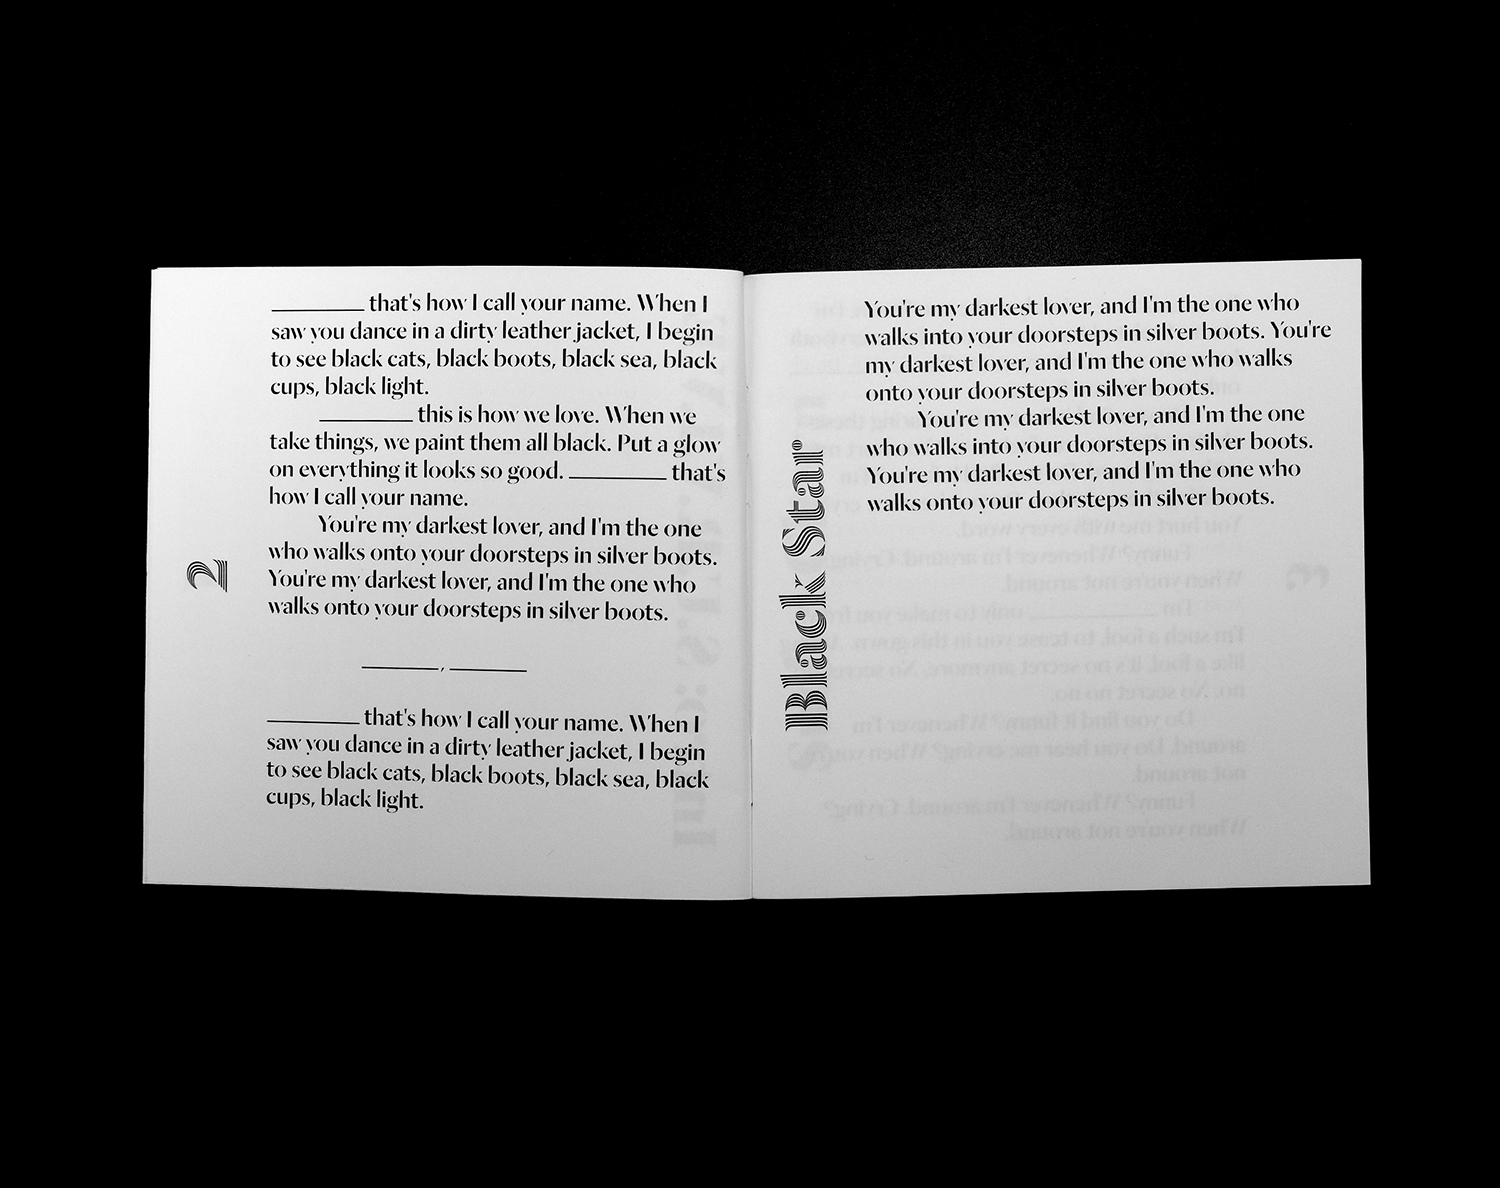 __________ that's how I call your name. When I
saw you dance in a dirty leather jacket, I begin
to see black cats, black boots, black sea, black
cups, black light.
__________ this is how we love. When we
take things, we paint them all black. Put a glow
on everything it looks so good. __________ that's
how I call your name.
You're my darkest lover, and I'm the one
who walks onto your doorsteps in silver boots.
You're my darkest lover, and I'm the one who
walks onto your doorsteps in silver boots.
________, ________
__________ that's how I call your name. When I
saw you dance in a dirty leather jacket, I begin
to see black cats, black boots, black sea, black
cups, black light.
2
Black Star
You're my darkest lover, and I'm the one who
walks into your doorsteps in silver boots. You're
my darkest lover, and I'm the one who walks
onto your doorsteps in silver boots.
You're my darkest lover, and I'm the one
who walks into your doorsteps in silver boots.
You're my darkest lover, and I'm the one who
walks onto your doorsteps in silver boots.